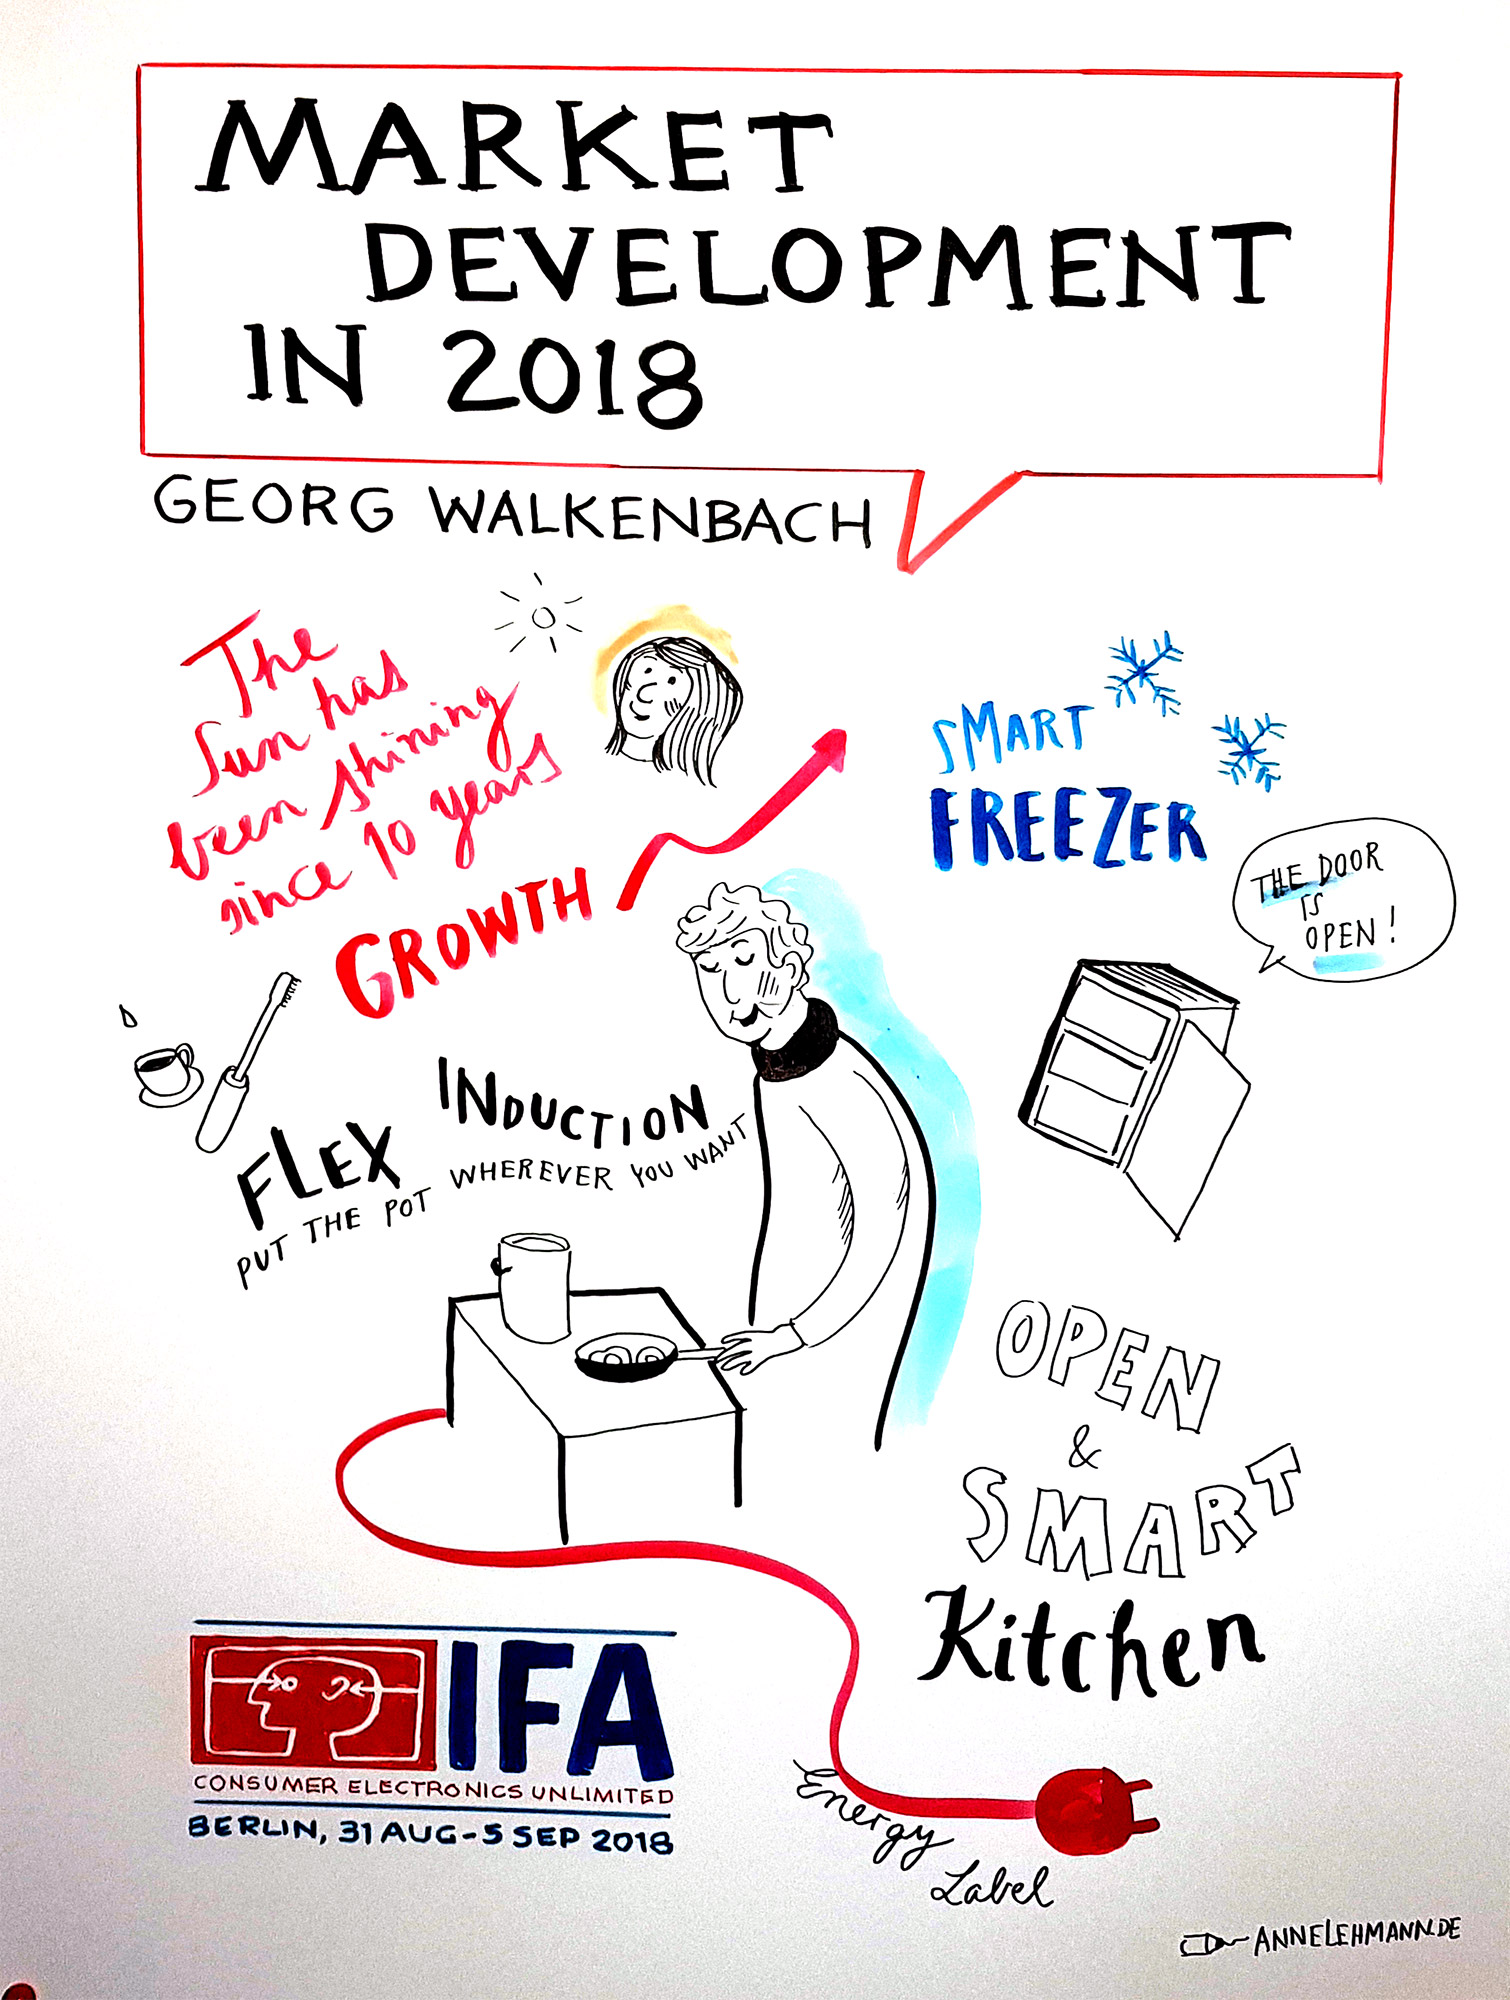 MARKET
DEVELOPMENT
IN 2018
GEORG WALKENBACH
The
Sun has
been shining
since 10 years
GROWTH
SMART
FREEZER
THE DOOR
IS
OPEN!
FLEX INDUCTION
PUT THE POT WHEREVER YOU WANT
OPEN
&
SMART
Kitchen
IFA
CONSUMER ELECTRONICS UNLIMITED
BERLIN, 31 AUG-5 SEP 2018
Energy
Label
ANNELEHMANN.DE